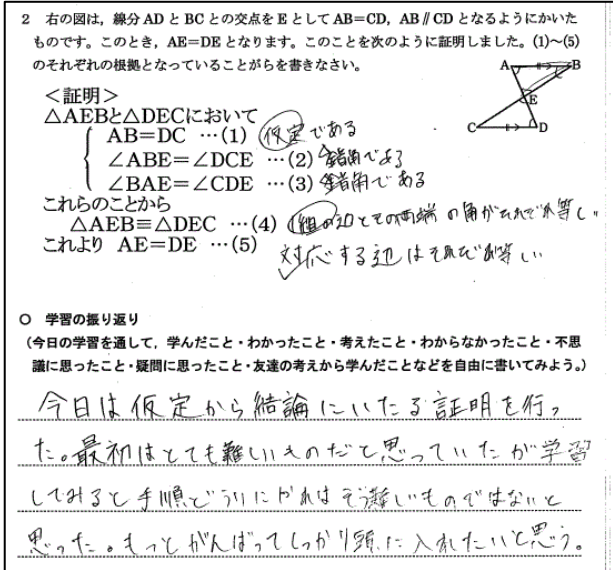 2 右の図は，線分ADとBCとの交点をEとしてAB=CD，AB∥CDとなるようにかいた
ものです。このとき，AE=DEとなります。このことを次のように証明しました。(1)~(5)
のそれぞれの根拠となっていることがらを書きなさい。
A B
E
C D
＜証明＞
△AEBと△DECにおいて
AB=DC …(1) 仮定である
∠ABE=∠DCE …(2) 錯角である
∠BAE=∠CDE …(3) 錯角である
これらのことから
△AEB≡△DEC …(4) 1組の辺とその両端の角がそれぞれ等しい
これより AE=DE …(5)
対応する辺はそれぞれ等しい
○ 学習の振り返り
（今日の学習を通して，学んだこと・わかったこと・考えたこと・わからなかったこと・不思
議に思ったこと・疑問に思ったこと・友達の考えから学んだことなどを自由に書いてみよう。）
今日は仮定から結論にいたる証明を行っ
た。最初はとても難しいものだと思っていたが学習
してみると手順どうりにやれはそう難しいものではないと
思った。もっとがんばってしっかり頭に入れたいと思う。